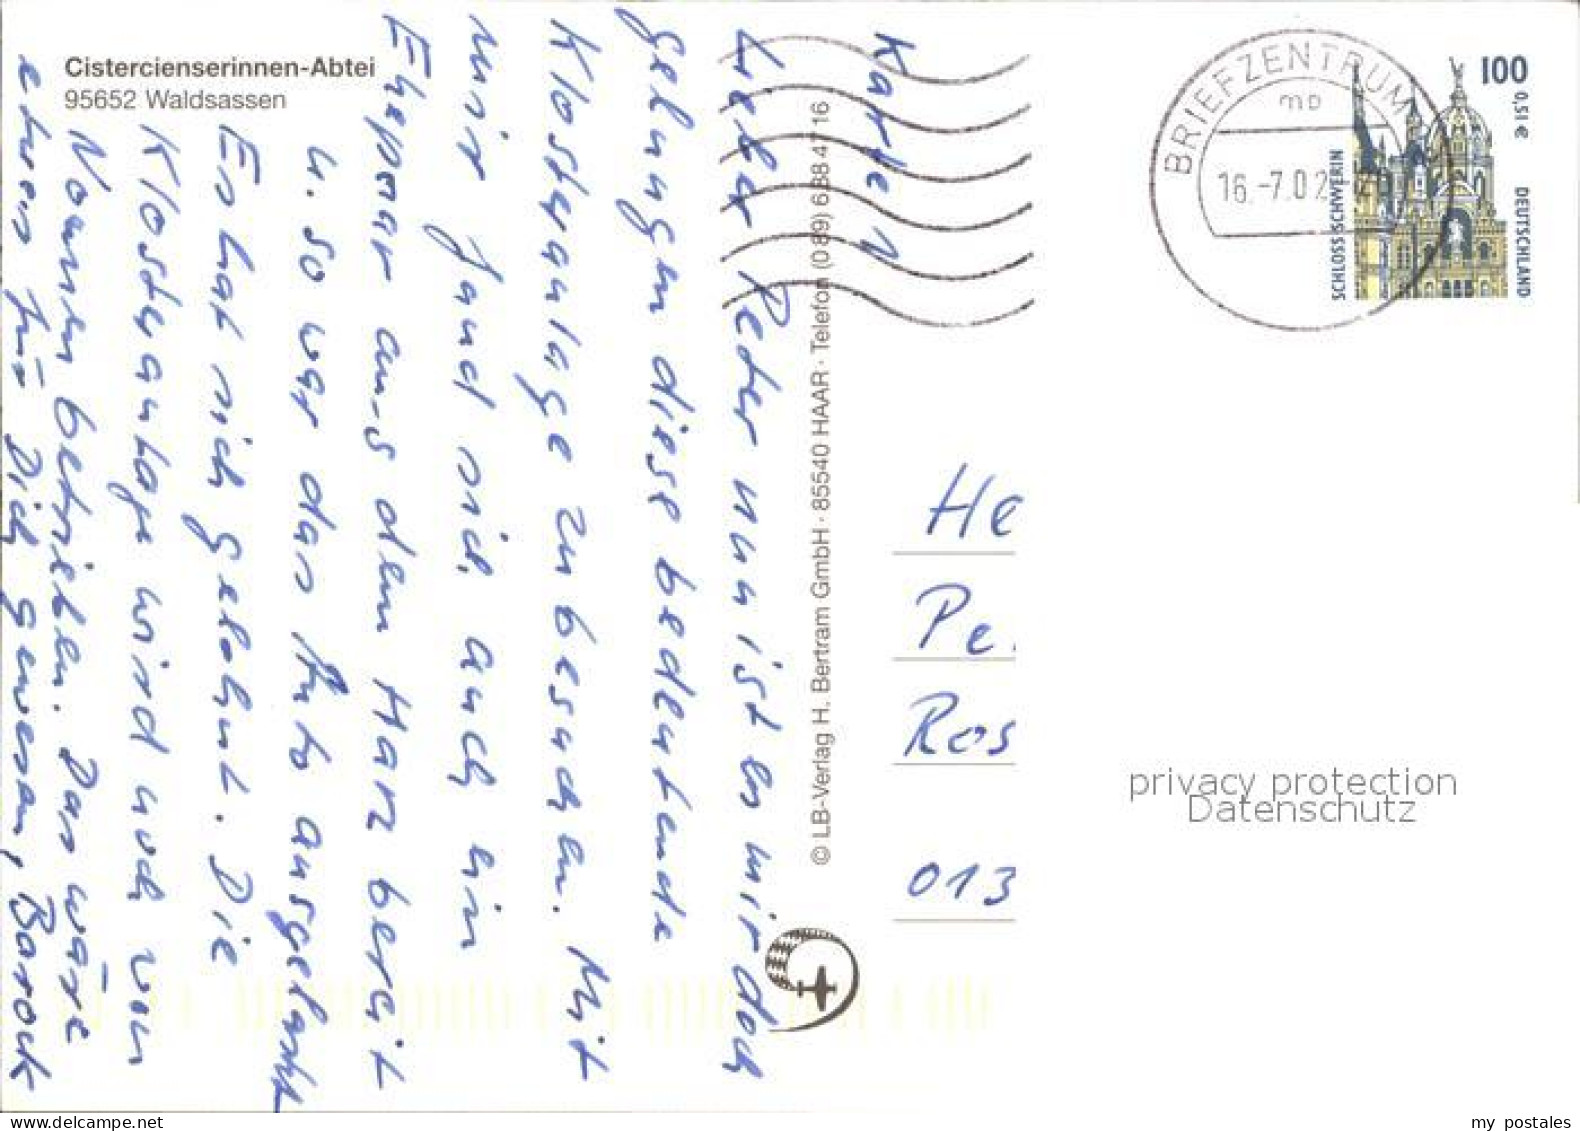 Cistercienserinnen-Abtei
95652 Waldsassen
Karte 1
Lieber Peter nun ist es mir doch
gelungen diese bedeutende
Klosteranlage zu besuchen. Mit
mir fand sich auch ein
Ehepaar aus dem Harz bereit
u. so war das Auto ausgelastet
Es hat sich gelohnt. Die
Klosteranlage wird noch von
Nonnen betrieben. Das wäre
etwas für Dich gewesen, Barock
© LB-Verlag H. Bertram GmbH · 85540 HAAR · Telefon (0 89) 6 88 47 16
BRIEFZENTRUM
mp
16.-7.02
100
0,51 €
DEUTSCHLAND
SCHLOSS SCHWERIN
He
Pe
Ros
013
privacy protection
Datenschutz
my postales